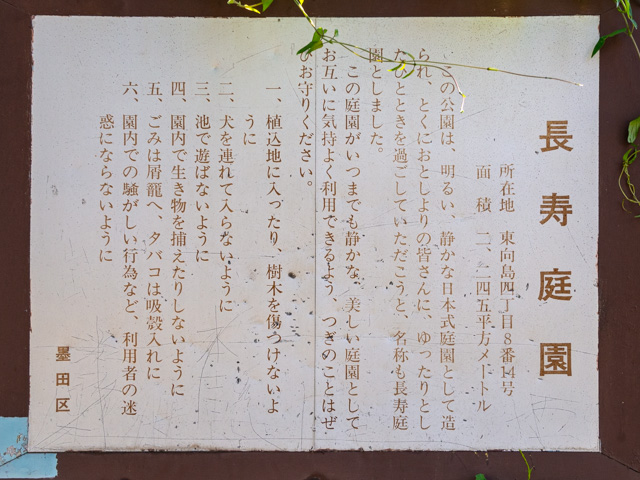 長寿庭園
所在地 東向島四丁目8番14号
面積 二、二四五平方メートル
この公園は、明るい、静かな日本式庭園として造
られ、とくにおとしよりの皆さんに、ゆったりとし
たひとときを過ごしていただこうと、名称も長寿庭
園としました。
この庭園がいつまでも静かな、美しい庭園として
お互いに気持よく利用できるよう、つぎのことはぜ
ひお守りください。
一、植込地に入ったり、樹木を傷つけないよ
うに
二、犬を連れて入らないように
三、池で遊ばないように
四、園内で生き物を捕えたりしないように
五、ごみは屑籠へ、タバコは吸殻入れに
六、園内での騒がしい行為など、利用者の迷
惑にならないように
墨田区